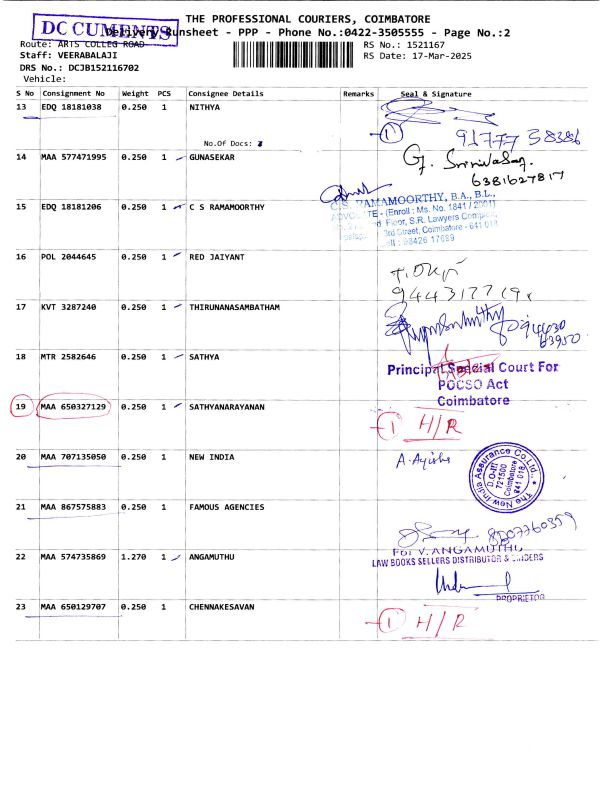 THE PROFESSIONAL COURIERS, COIMBATORE
DOCUMENTS
Delivery Runsheet - PPP - Phone No.:0422-3505555 - Page No.:2
Route: ARTS COLLEG ROAD
RS No.: 1521167
Staff: VEERABALAJI
RS Date: 17-Mar-2025
DRS No.: DCJB152116702
Vehicle:
S No Consignment No Weight PCS Consignee Details Remarks Seal & Signature
13 EDQ 18181038 0.250 1 NITHYA
No.Of Docs:
1
91777 38386
14 MAA 577471995 0.250 1 GUNASEKAR
G. Srinivasan.
6381627817
15 EDQ 18181206 0.250 1 C S RAMAMOORTHY
C.S. RAMAMOORTHY, B.A., B.L.,
ADVOCATE - (Enroll : Ms. No. 1841 / 2001)
Floor, S.R. Lawyers Complex,
3rd Street, Coimbatore - 641 018
Cell : 98426 17689
16 POL 2044645 0.250 1 RED JAIYANT
17 KVT 3287240 0.250 1 THIRUNANASAMBATHAM
18 MTR 2582646 0.250 1 SATHYA
Principal Special Court For
POCSO Act
Coimbatore
19 MAA 650327129 0.250 1 SATHYANARAYANAN
1 H/R
20 MAA 707135050 0.250 1 NEW INDIA
A. Ayisha
The New India Assurance Co.Ltd.,
D.O-III
721500
Coimbatore
641 018
21 MAA 867575883 0.250 1 FAMOUS AGENCIES
8207760359
22 MAA 574735869 1.270 1 ANGAMUTHU
For V.ANGAMUTHU
LAW BOOKS SELLERS DISTRIBUTOR & BINDERS
PROPRIETOR
23 MAA 650129707 0.250 1 CHENNAKESAVAN
1 H/R